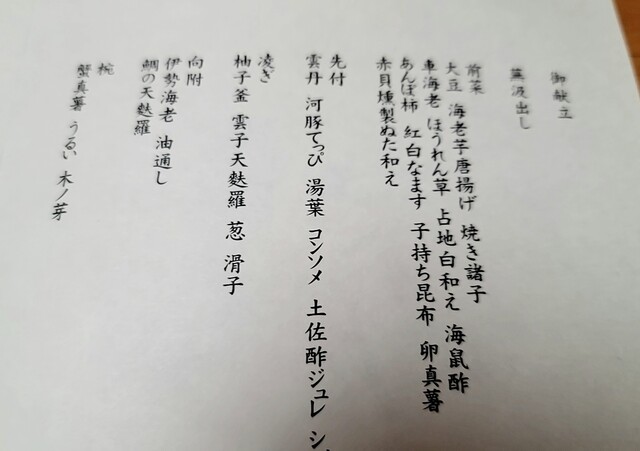 御献立
蕪汲出し
前菜
大豆 海老芋唐揚げ 焼き諸子
車海老 ほうれん草 占地白和え 海鼠酢
あんぽ柿 紅白なます 子持ち昆布 卵真薯
赤貝燻製ぬた和え
先付
雲丹 河豚てっぴ 湯葉 コンソメ 土佐酢ジュレ シ
凌ぎ
柚子釜 雲子天麩羅 葱 滑子
向附
伊勢海老 油通し
鯛の天麩羅
椀
蟹真薯 うるい 木ノ芽